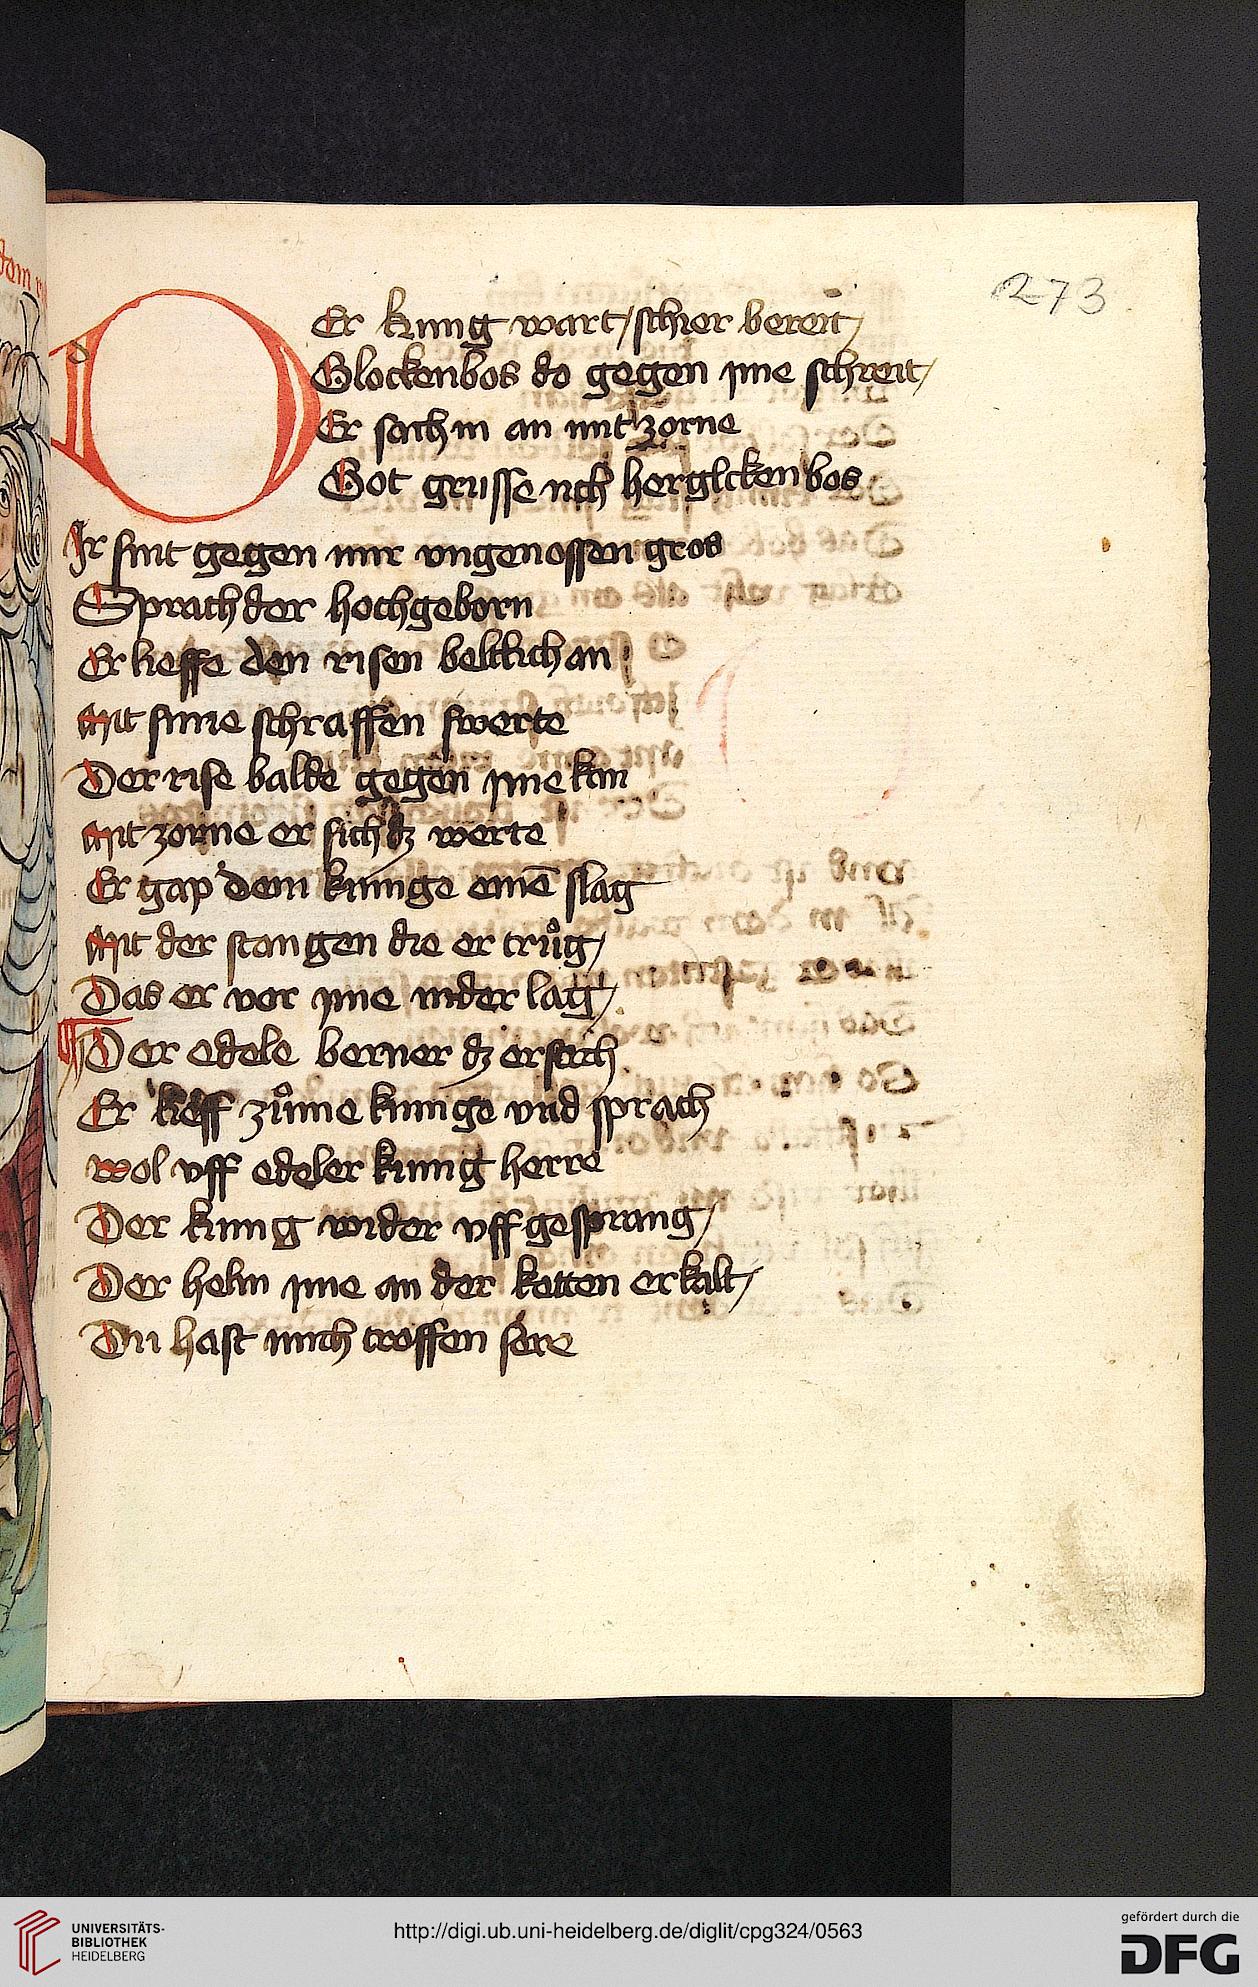 273
DEr kunig wart schier bereit
Glockenbos do gegen yme schreit
Er sach in an mit zorne
Got grusse uch herglckenbos
Ir sint gegen mir vngenossen gros
Sprach der hochgeborn
Er lieffe den risen beltlich an
Mit sime schraffen swerte
Der rise balde gegen yme kam
Mit zorne er sich dz werte
Er gap dem kunige einē slag
Mit der stangen die er trůg
Das er vor yme nider lag
Der edele berner dz ersach
Er lieff zůme kunige vnd sprach
wol vff edeler kunig herre
Der kunig wider vff gesprang
Der helm yme an der ketten erkalt
Du hast mich troffen sere
UNIVERSITÄTS-
BIBLIOTHEK
HEIDELBERG
http://digi.ub.uni-heidelberg.de/diglit/cpg324/0563
gefördert durch die
DFG